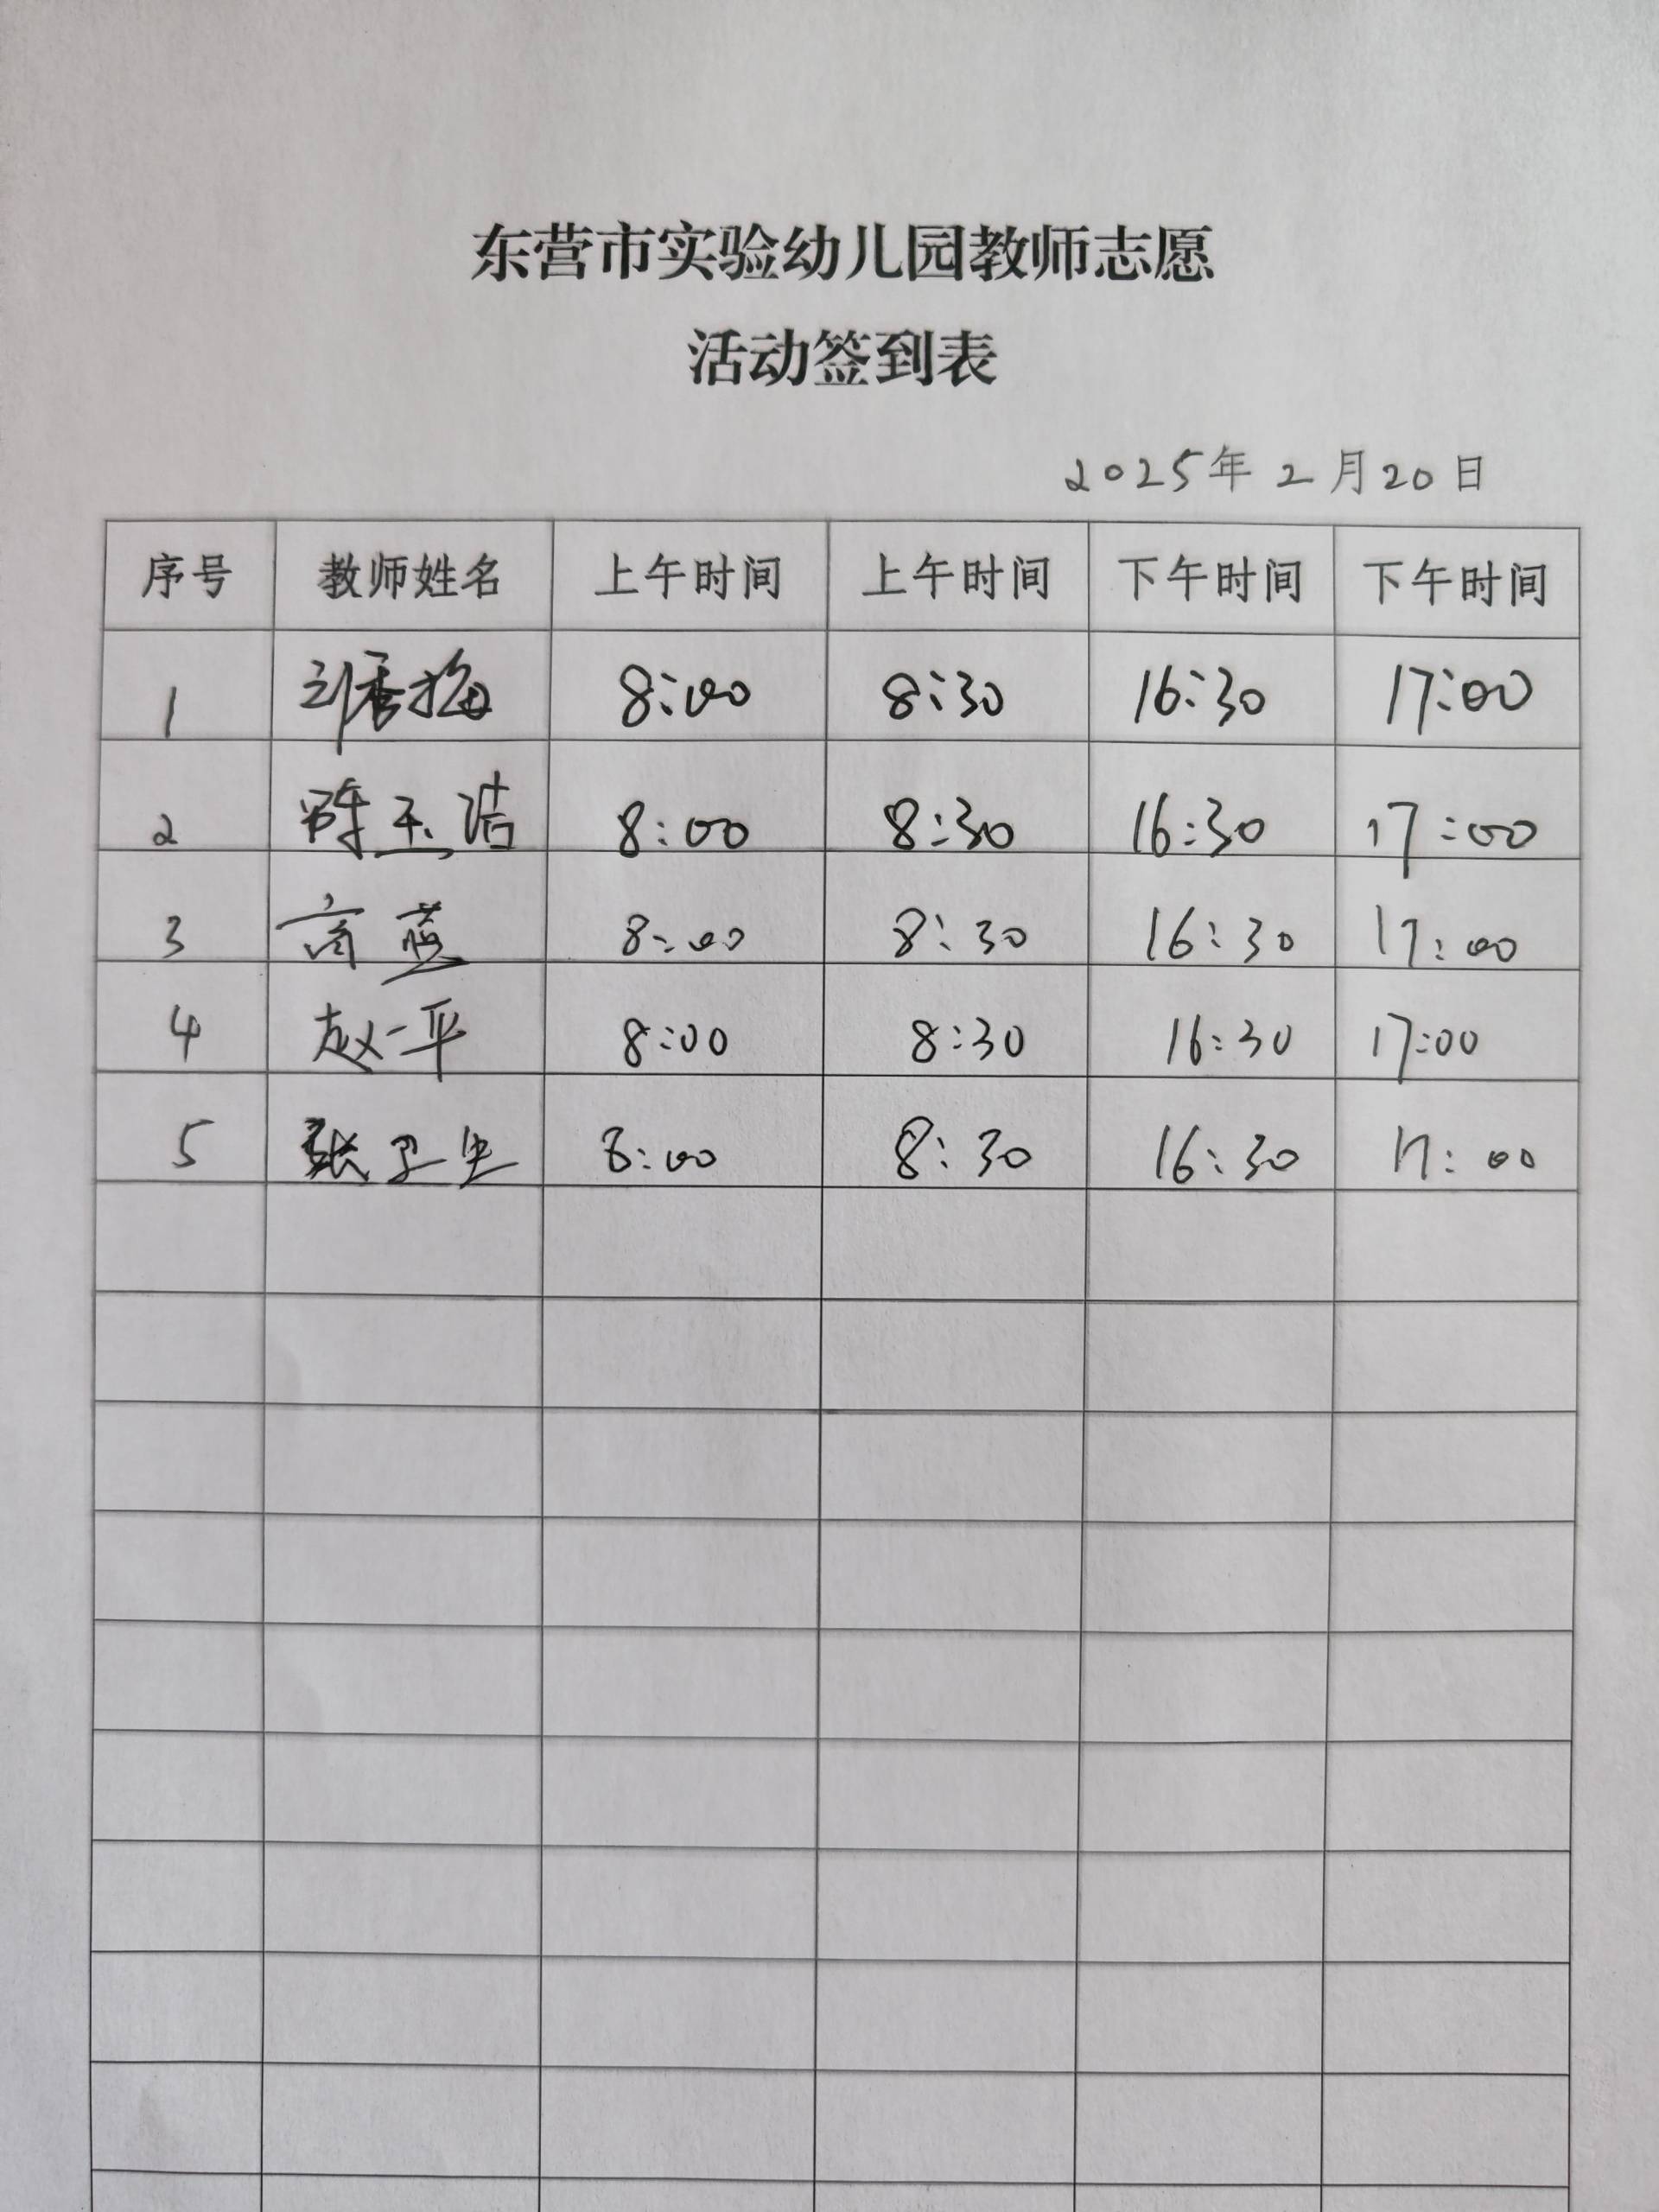 东营市实验幼儿园教师志愿
活动签到表
2025年2月20日
序号 教师姓名 上午时间 上午时间 下午时间 下午时间
1 刘秀梅 8:00 8:30 16:30 17:00
2 陈玉洁 8:00 8:30 16:30 17:00
3 商蓝 8:00 8:30 16:30 17:00
4 赵一平 8:00 8:30 16:30 17:00
5 张卫生 8:00 8:30 16:30 17:00